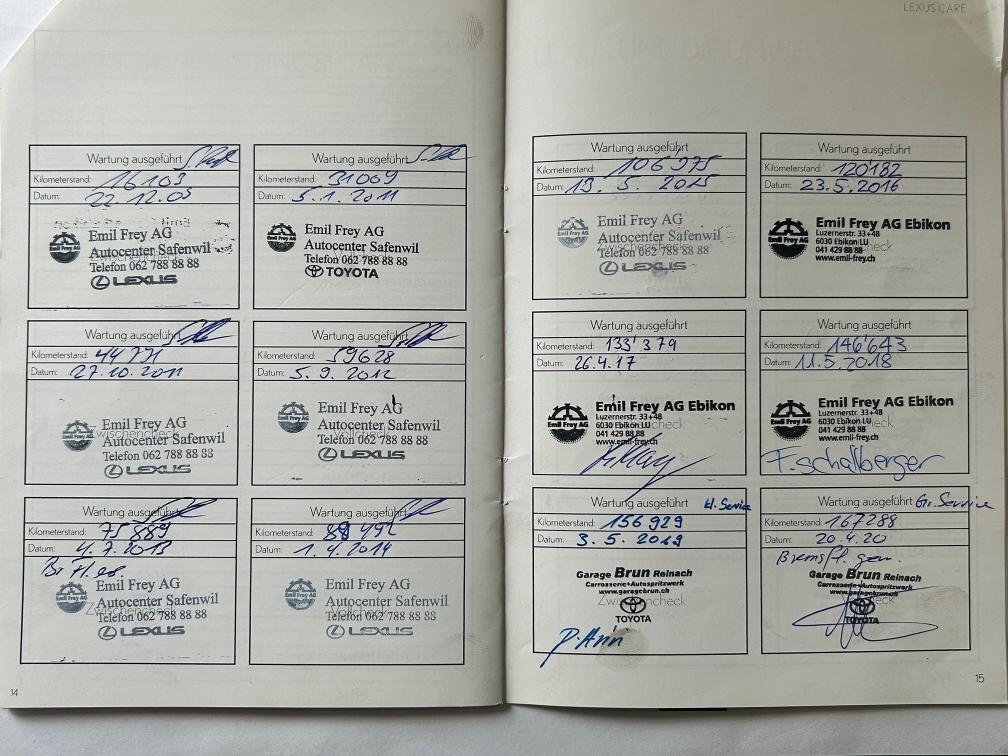 LEXUS CARE
Wartung ausgeführt
Kilometerstand: 16103
Datum: 22.12.09
Emil Frey AG
Emil Frey AG
Autocenter Safenwil
Telefon 062 788 88 88
LEXUS
Wartung ausgeführt
Kilometerstand: 31009
Datum: 5.1.2011
Emil Frey AG
Emil Frey AG
Autocenter Safenwil
Telefon 062 788 88 88
TOYOTA
Wartung ausgeführt
Kilometerstand: 44771
Datum: 27.10.2011
Emil Frey AG
Emil Frey AG
Zwischencheck
Autocenter Safenwil
Telefon 062 788 88 88
LEXUS
Wartung ausgeführt
Kilometerstand: 59628
Datum: 5.9.2012
Emil Frey AG
Emil Frey AG
Vollcheck
Autocenter Safenwil
Telefon 062 788 88 88
LEXUS
Wartung ausgeführt
Kilometerstand: 75889
Datum: 4.7.2013
Emil Frey AG
Emil Frey AG
Zwischencheck
Autocenter Safenwil
Telefon 062 788 88 88
LEXUS
Wartung ausgeführt
Kilometerstand: 89492
Datum: 1.4.2014
Emil Frey AG
Emil Frey AG
Vollcheck
Autocenter Safenwil
Telefon 062 788 88 88
LEXUS
14
Wartung ausgeführt
Kilometerstand: 106975
Datum: 13.5.2015
Emil Frey AG
Emil Frey AG
Zwischencheck
Autocenter Safenwil
Telefon 062 788 88 88
LEXUS
Wartung ausgeführt
Kilometerstand: 120'182
Datum: 23.5.2016
Emil Frey AG
Emil Frey AG Ebikon
Luzernerstr. 33+48
6030 Ebikon LU
041 429 88 88
www.emil-frey.ch
Wartung ausgeführt
Kilometerstand: 133'379
Datum: 26.4.17
Emil Frey AG
Emil Frey AG Ebikon
Luzernerstr. 33+48
6030 Ebikon LU
041 429 88 88
www.emil-frey.ch
Wartung ausgeführt
Kilometerstand: 146'643
Datum: 11.5.2018
Emil Frey AG
Emil Frey AG Ebikon
Luzernerstr. 33+48
6030 Ebikon LU
041 429 88 88
www.emil-frey.ch
F. Schallberger
Wartung ausgeführt kl. Service
Kilometerstand: 156929
Datum: 3.5.2019
Garage Brun Reinach
Carrosserie+Autospritzwerk
www.garagebrun.ch
Zwischencheck
TOYOTA
Wartung ausgeführt Gr. Service
Kilometerstand: 167288
Datum: 20.4.20
Bremsfl. gew.
Garage Brun Reinach
Carrosserie+Autospritzwerk
www.garagebrun.ch
TOYOTA
15